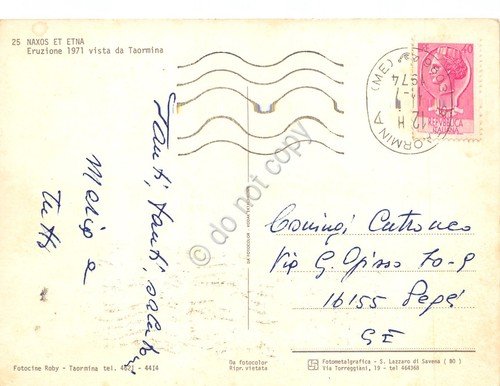 25 NAXOS ET ETNA
Eruzione 1971 vista da Taormina
Tanti, tanti, saluti
Maria e
tutti
do not copy
TAORMINA
(ME)
1974
12
H
40
REPVBBLICA
ITALIANA
Via G. Opisso 70-9
16155 Pegli
GE
DA FOTOCOLOR
Fotocine Roby - Taormina tel. 4621 - 4414
Da fotocolor
Ripr. vietata
Fotometalgrafica - S. Lazzaro di Savena ( BO )
Via Torreggiani, 19 - tel 464368